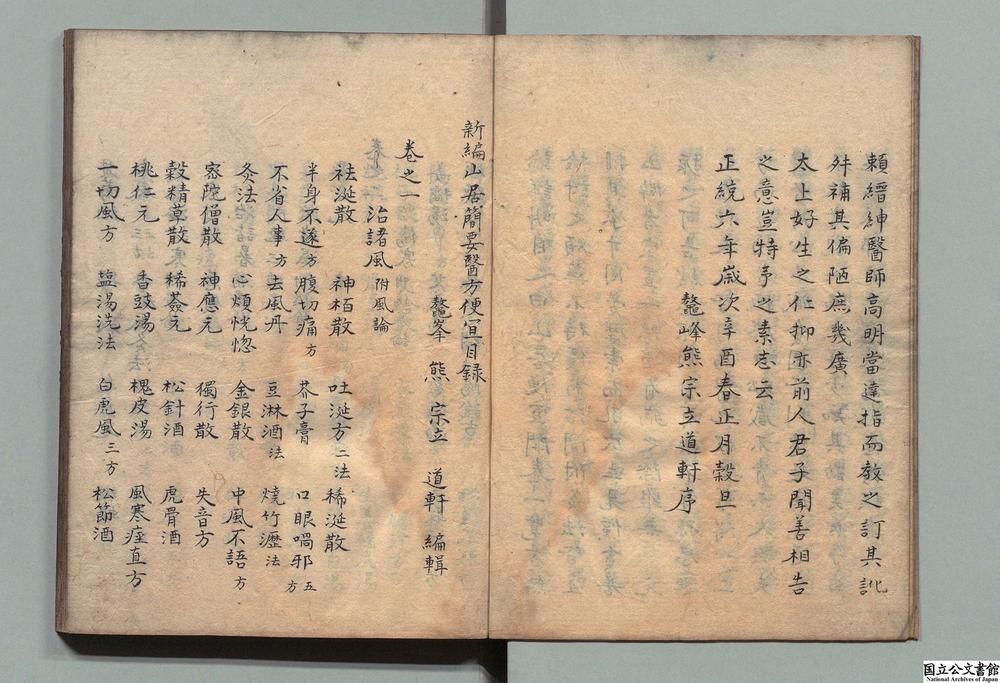 頼縉紳醫師高明當達指而教之訂其訛
舛補其偏陋庶幾廣
太上好生之仁抑亦前人君子聞善相告
之意豈特予之素志云
正統六年歲次辛酉春正月穀旦
鼇峰熊宗立道軒序
新編山居簡要醫方便宜目録
鼇峯 熊 宗立 道軒 編輯
卷之一 治諸風 附風論
祛涎散 神栢散 吐涎方二法 稀涎散
半身不遂方 腹切痛方 芥子膏 口眼喎邪五方
不省人事方 去風丹 豆淋酒法 燒竹瀝法
灸法 心煩恍惚 金銀散 中風不語方
密陀僧散 神應元 獨行散 失音方
穀精草散 稀薟元 松針酒 虎骨酒
桃仁元 香豉湯 槐皮湯 風寒痓直方
一切風方 塩湯洗法 白虎風三方 松節酒
国立公文書館
National Archives of Japan